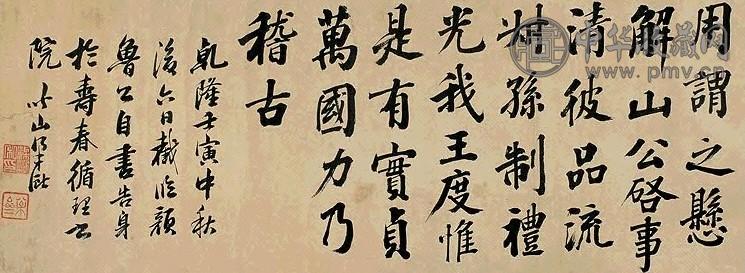 周謂之懸
解山公啓事
清彼品流
叔孫制禮
光我王度惟
是有實貞
萬國力乃
稽古
乾隆壬寅中秋
後六日臨顏
魯公自書告身
於壽春循理書
院
中华收藏网
www.pmv.cn